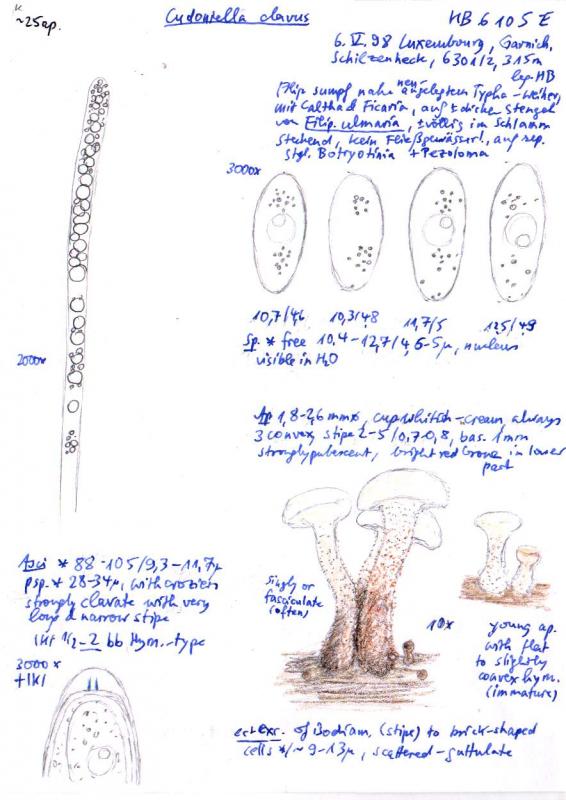 ~25 ap.
Cudoniella clavus
HB 6105 E
6. IV. 98 Luxembourg, Garnich,
Schilzenheck, 6301/2, 315m
leg. HB
Filip sumpf nahe neu-angelegtem Typha-Weiher,
mit Caltha & Ficaria, auf ± dicken Stengel
von Filip. ulmaria, ± völlig im Schlamm
steckend, kein Fließgewässer!, auf sep.
Stgl. Botryotinia + Pezoloma
3000x
10,7/4,6 10,3/4,8 11,7/5 12,5/4,9
Sp. * free 10,4-12,7/4,6-5µ, nucleus
visible in H2O
2000x
Ap 1,8-2,6 mm ø, cup whitish-cream, always
± convex, stipe 2-5/0,7-0,8, bas. 1mm
strongly pubescent, bright red brown in lower
part
Asci * 88-105/9,3-11,7µ
psp. * 28-34µ, with croziers
strongly clavate with very
long & narrow stipe
IKI 1/2-2 bb Hym.-type
3000x
+IKI
singly or
fasciculate
(often)
10x
young ap.
with flat
to slightly
convex hym.
(immature)
ect. exc. of
(stipe) to brick-shaped
cells */~ 9-13µ, scattered-guttulate